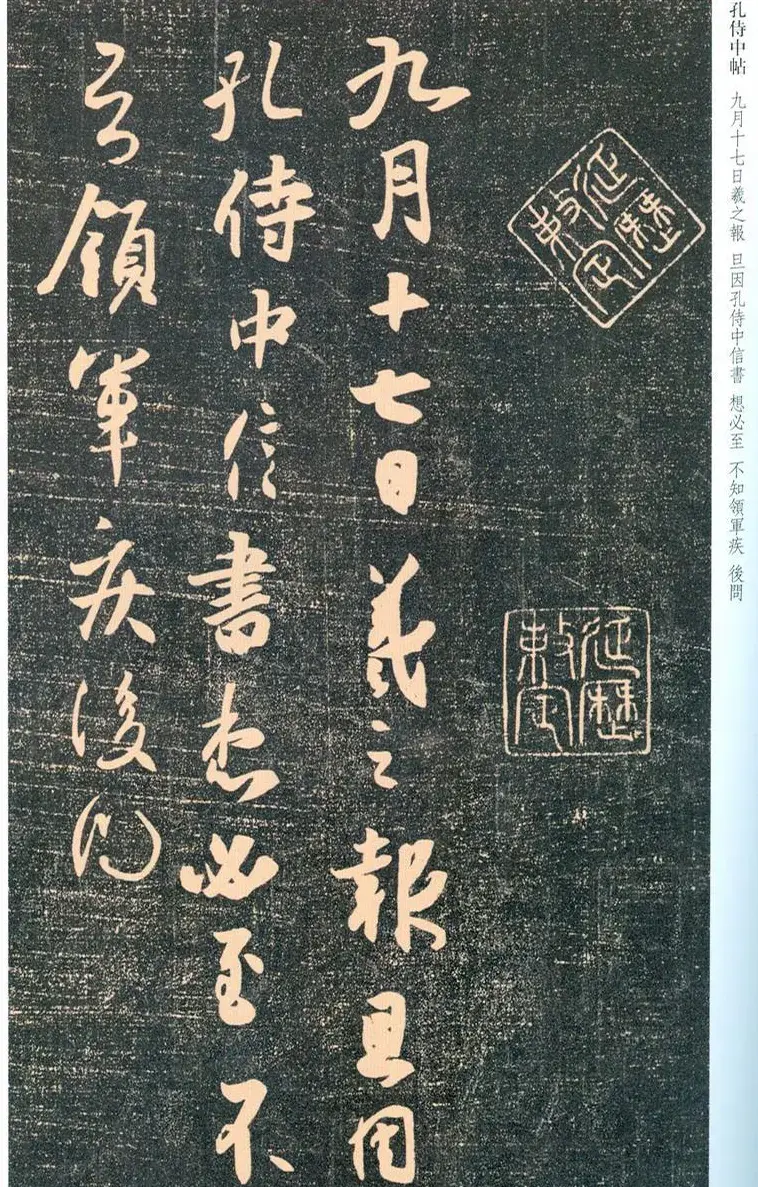 孔侍中帖 九月十七日羲之報 旦因孔侍中信書 想必至 不知領軍疾 後問
延曆敕定
九月十七日羲之報且因
孔侍中信書想必至不
知領軍疾後問